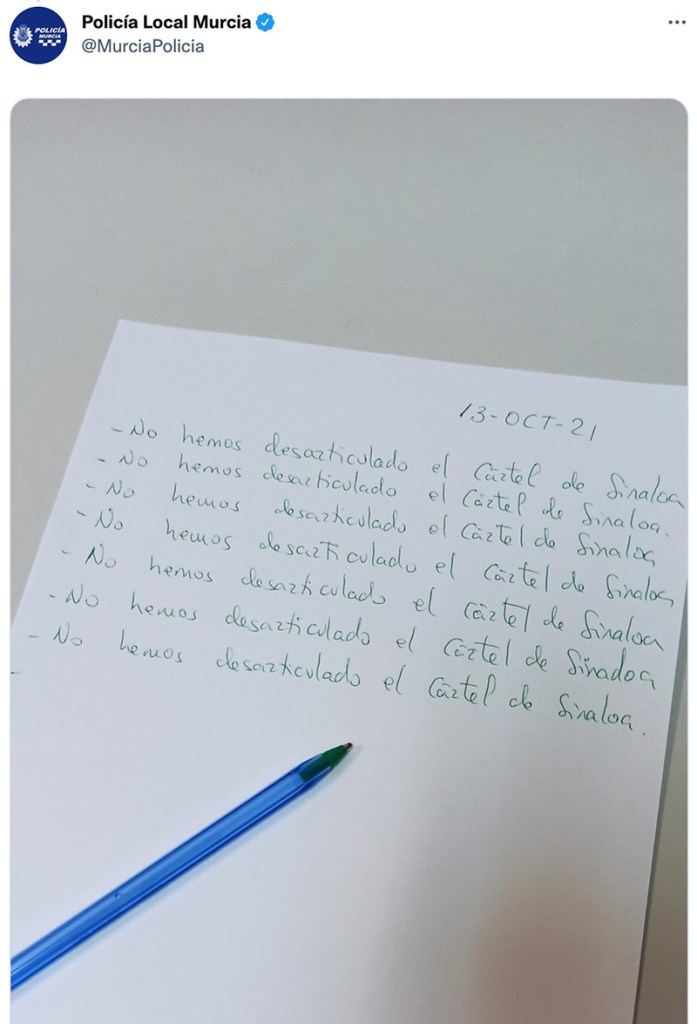 Policía Local Murcia
@MurciaPolicia
POLICÍA
MURCIA
13-OCT-21
- No hemos desarticulado el Cártel de Sinaloa
- No hemos desarticulado el Cártel de Sinaloa.
- No hemos desarticulado el Cártel de Sinaloa
- No hemos desarticulado el Cártel de Sinaloa
- No hemos desarticulado el Cártel de Sinaloa
- No hemos desarticulado el Cártel de Sinadoa
- No hemos desarticulado el Cártel de Sinaloa.